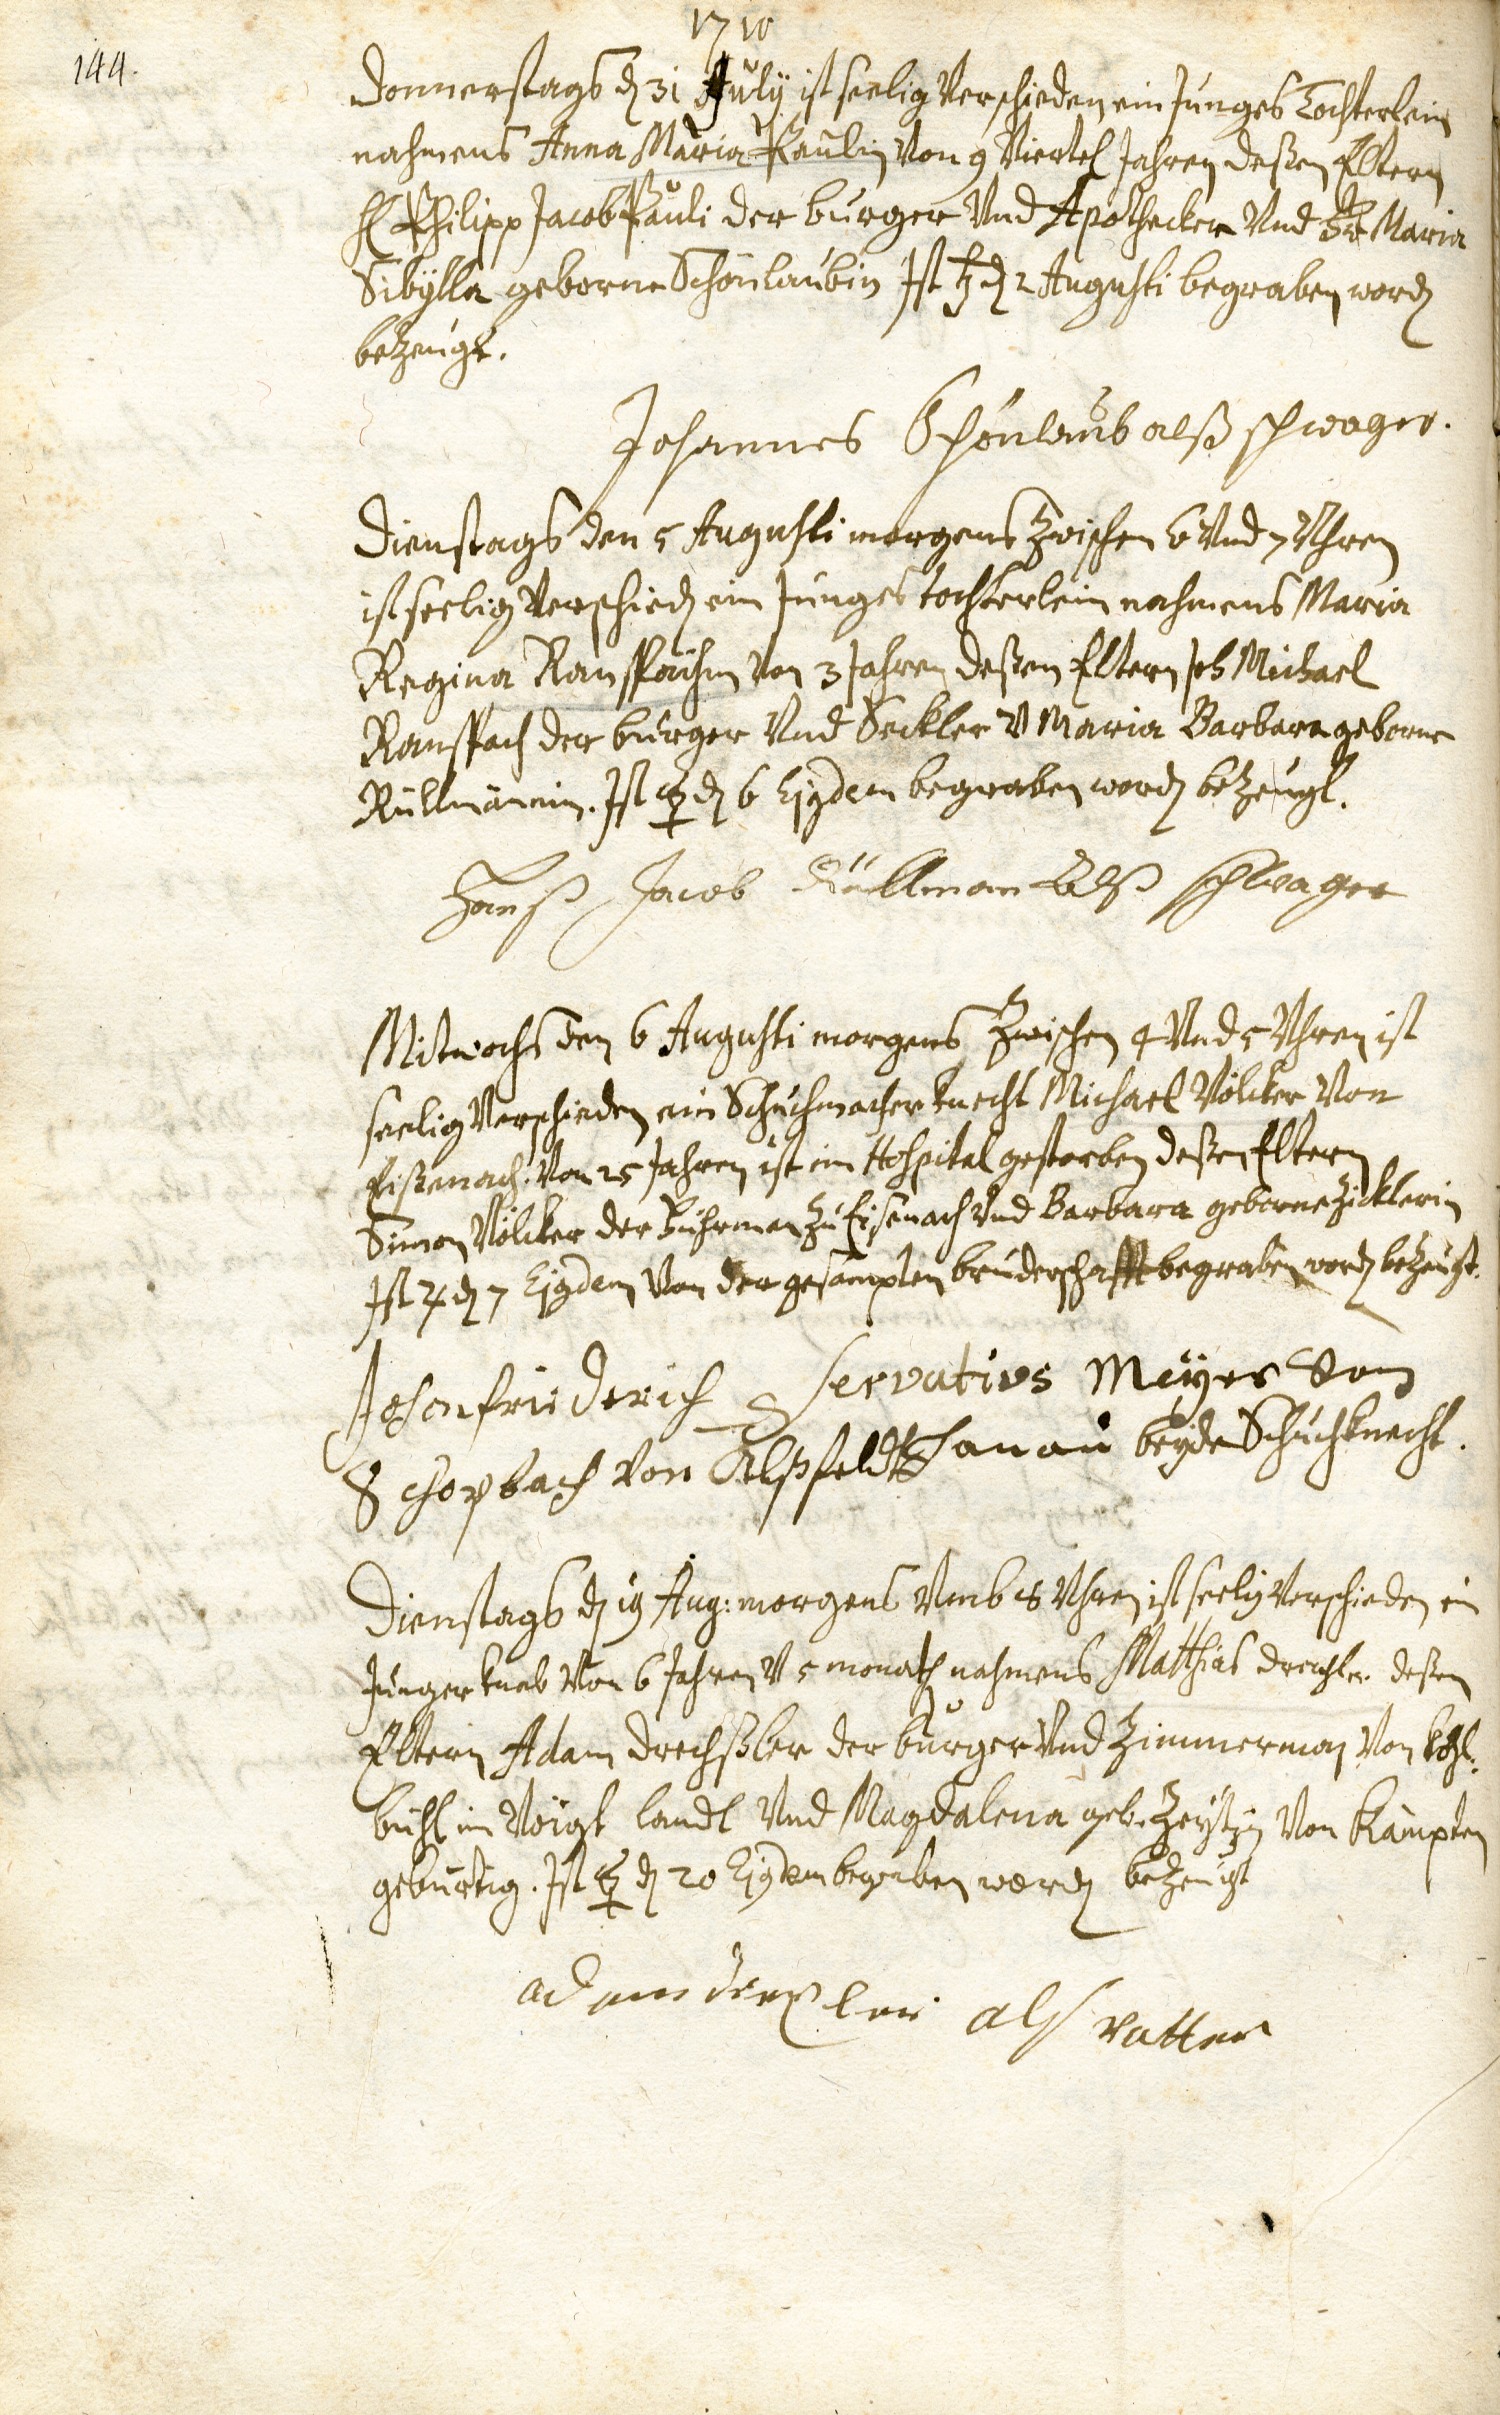 1710
144.
Donnerstags d 31 July ist seelig Verschieden ein Junges Tochterlein
nahmens Anna Maria Paulin Von 9 Viertel Jahren deßen Eltern
H Philipp Jacob Pauli der burger Vnd Apothecker Vnd Fr Maria
Sibÿlla geborne Schönlaubin Ist ♄ d 2 Augusti begraben word
bezeugt.
Johannes Schönlaub alß schwager.
Dienstags den 5 Augusti morgens Zwischen 6 Vnd 7 Vhren
ist seelig Verschied ein Junges tochterlein nahmens Maria
Regina Ranspächin Von 3 Jahren deßen Eltern Joh Michael
Ranspach der burger Vnd Seckler V Maria Barbara geborne
Küllmännin. Ist ☿ d 6 Ejgdem begraben word bezeugt.
Hanß Jacob Küllman Alß schwager
Mitwochs den 6 Augusti morgens Zwischen 4 Vnd 5 Vhren ist
seelig Verschieden ein Schuchmacher knecht Michael Völcker Von
Eißenach. Von 25 Jahren ist im Hospital gestorben deßen Eltern
Simon Völcker der Fuhrman Zu Eisenach Vnd Barbara geborne Zicklerin
Ist ♃ d 7 Ejgdem Von der gesampten bruderschafft begraben word bezeugt.
Johan friederich Servativs Meÿer Von
Schopbach von Alßfeldt Hanau beyde Schuchknecht.
Dienstags d 19 Aug: morgens Vmb 5 Vhren ist seelig Verschieden ein
Junger knab Von 6 Jahren V 5 monath nahmens Matthias Drechßler deßen
Eltern Adam Drechßler der burger Vnd Zimmerman Von
bühl im Voigt landt Vnd Magdalena geb. Von Kämpten
gebürtig. Ist ☿ d 20 Ejgdem begraben word bezeugt
adam alß vatter